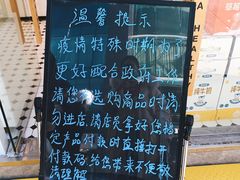 温馨提示
疫情特殊时期为了
更好配合政府工作
请您选购商品时请
勿进店,请店员拿好您指
定产品付款时直接打开
付款码,给您带来不便敬
请理解